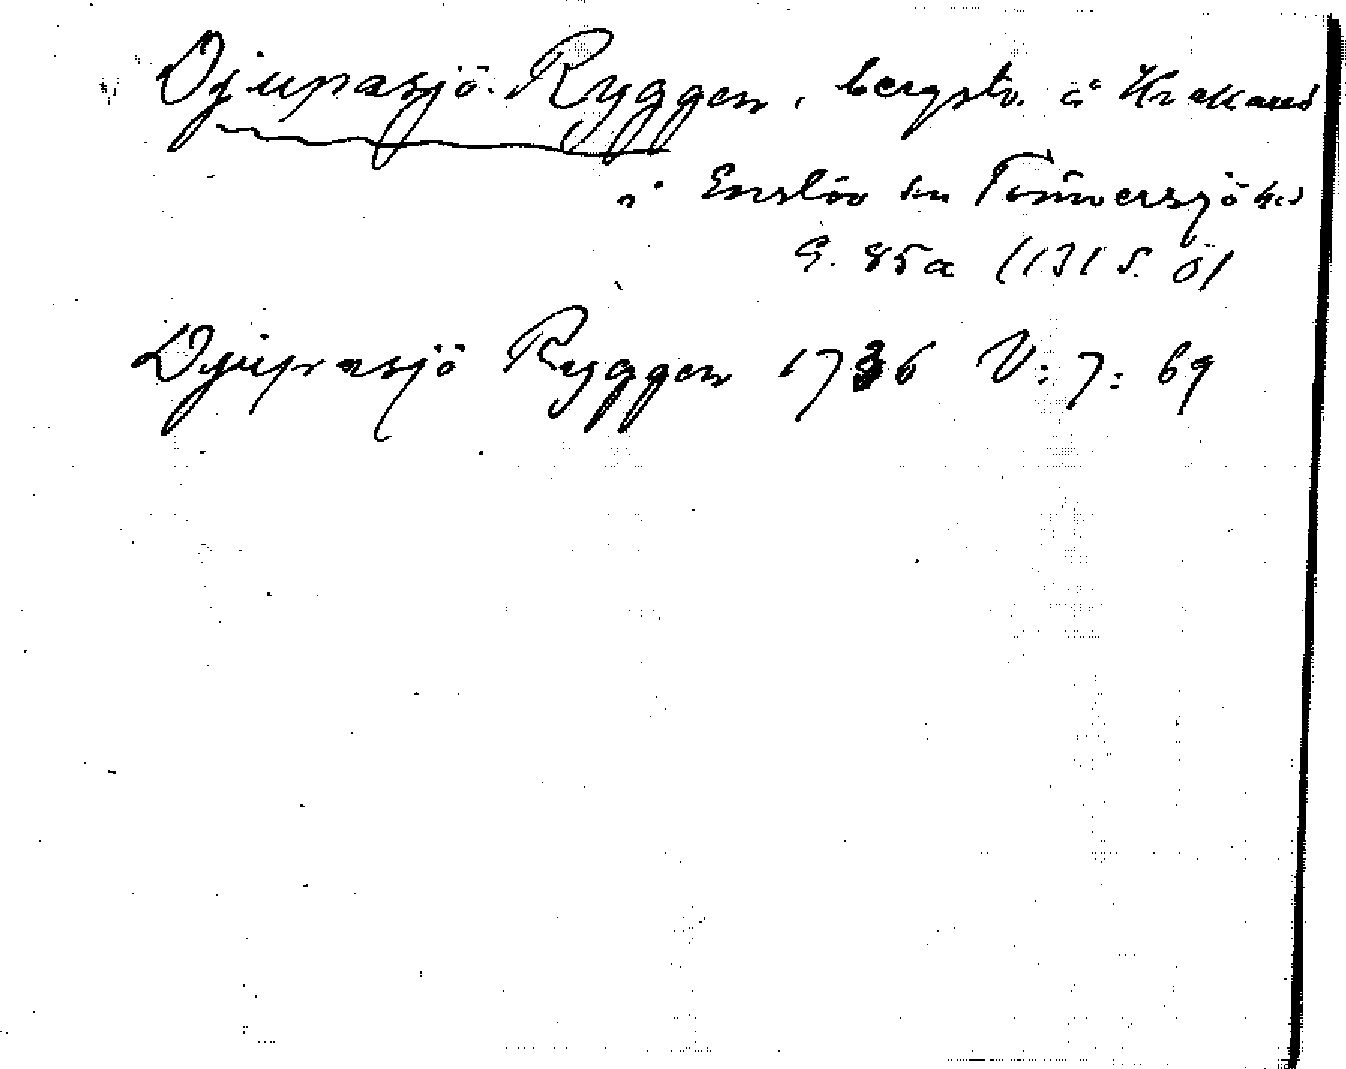 Djupasjö Ryggen, bergstr. å Krakared
i Enslöv sn Tönnersjö hd
G. 85a (131 S. Ö)
Djupasjö Ryggen 1736 V: 7: 69